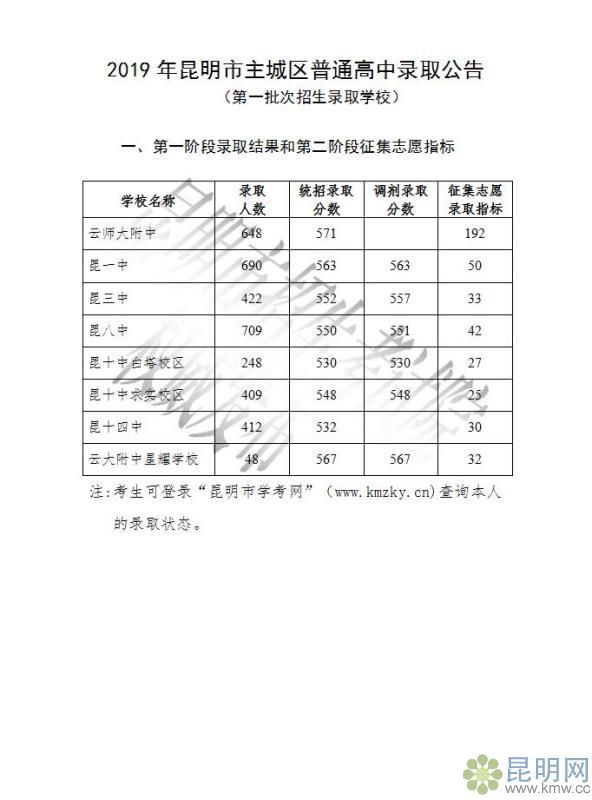 2019年昆明市主城区普通高中录取公告
（第一批次招生录取学校）
一、第一阶段录取结果和第二阶段征集志愿指标
学校名称 录取人数 统招录取分数 调剂录取分数 征集志愿录取指标
云师大附中 648 571 192
昆一中 690 563 563 50
昆三中 422 552 557 33
昆八中 709 550 551 42
昆十中白塔校区 248 530 530 27
昆十中求实校区 409 548 548 25
昆十四中 412 532 30
云大附中星耀学校 48 567 567 32
注:考生可登录“昆明市学考网”（www.kmzky.cn)查询本人
的录取状态。
昆明市招生考试院
权威发布
昆明网
www.kmw.cc